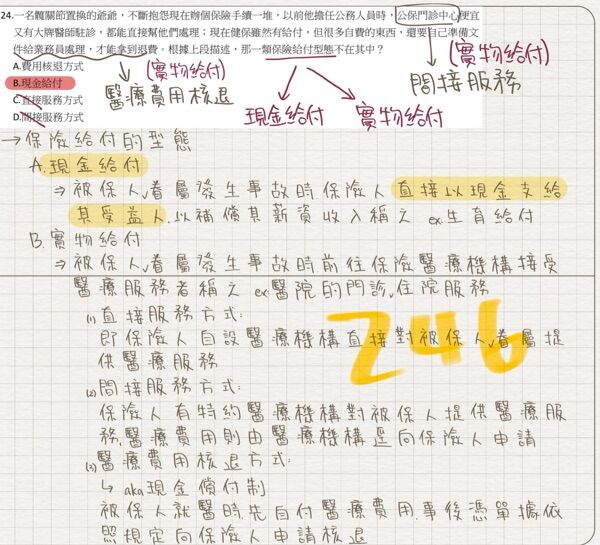 24.一名髖關節置換的爺爺，不斷抱怨現在辦個保險手續一堆，以前他擔任公務人員時，公保門診中心便宜
又有大牌醫師駐診，都能直接幫他們處理；現在健保雖然有給付，但很多自費的東西，還要自己準備文
件給業務員處理，才能拿到退費。根據上段描述，那一類保險給付型態不在其中？
(實物給付)
A.費用核退方式
(實物給付)
間接服務
B.現金給付
醫療費用核退
C.直接服務方式
現金給付
實物給付
D.間接服務方式
→保險給付的型態
A.現金給付
⇒被保人、眷屬發生事故時保險人直接以現金支給
其受益人,以補償其薪資收入稱之 ex.生育給付
B.實物給付
⇒被保人、眷屬發生事故時前往保險醫療機構接受
醫療服務者稱之 ex.醫院的門診、住院服務
(1)直接服務方式:
即保險人自設醫療機構直接對被保人、眷屬提
供醫療服務
246
(2)間接服務方式:
保險人有特約醫療機構對被保人提供醫療服
務,醫療費用則由醫療機構逕向保險人申請
(3)醫療費用核退方式:
↳aka現金償付制
被保人就醫時先自付醫療費用,事後憑單據依
照規定向保險人申請核退